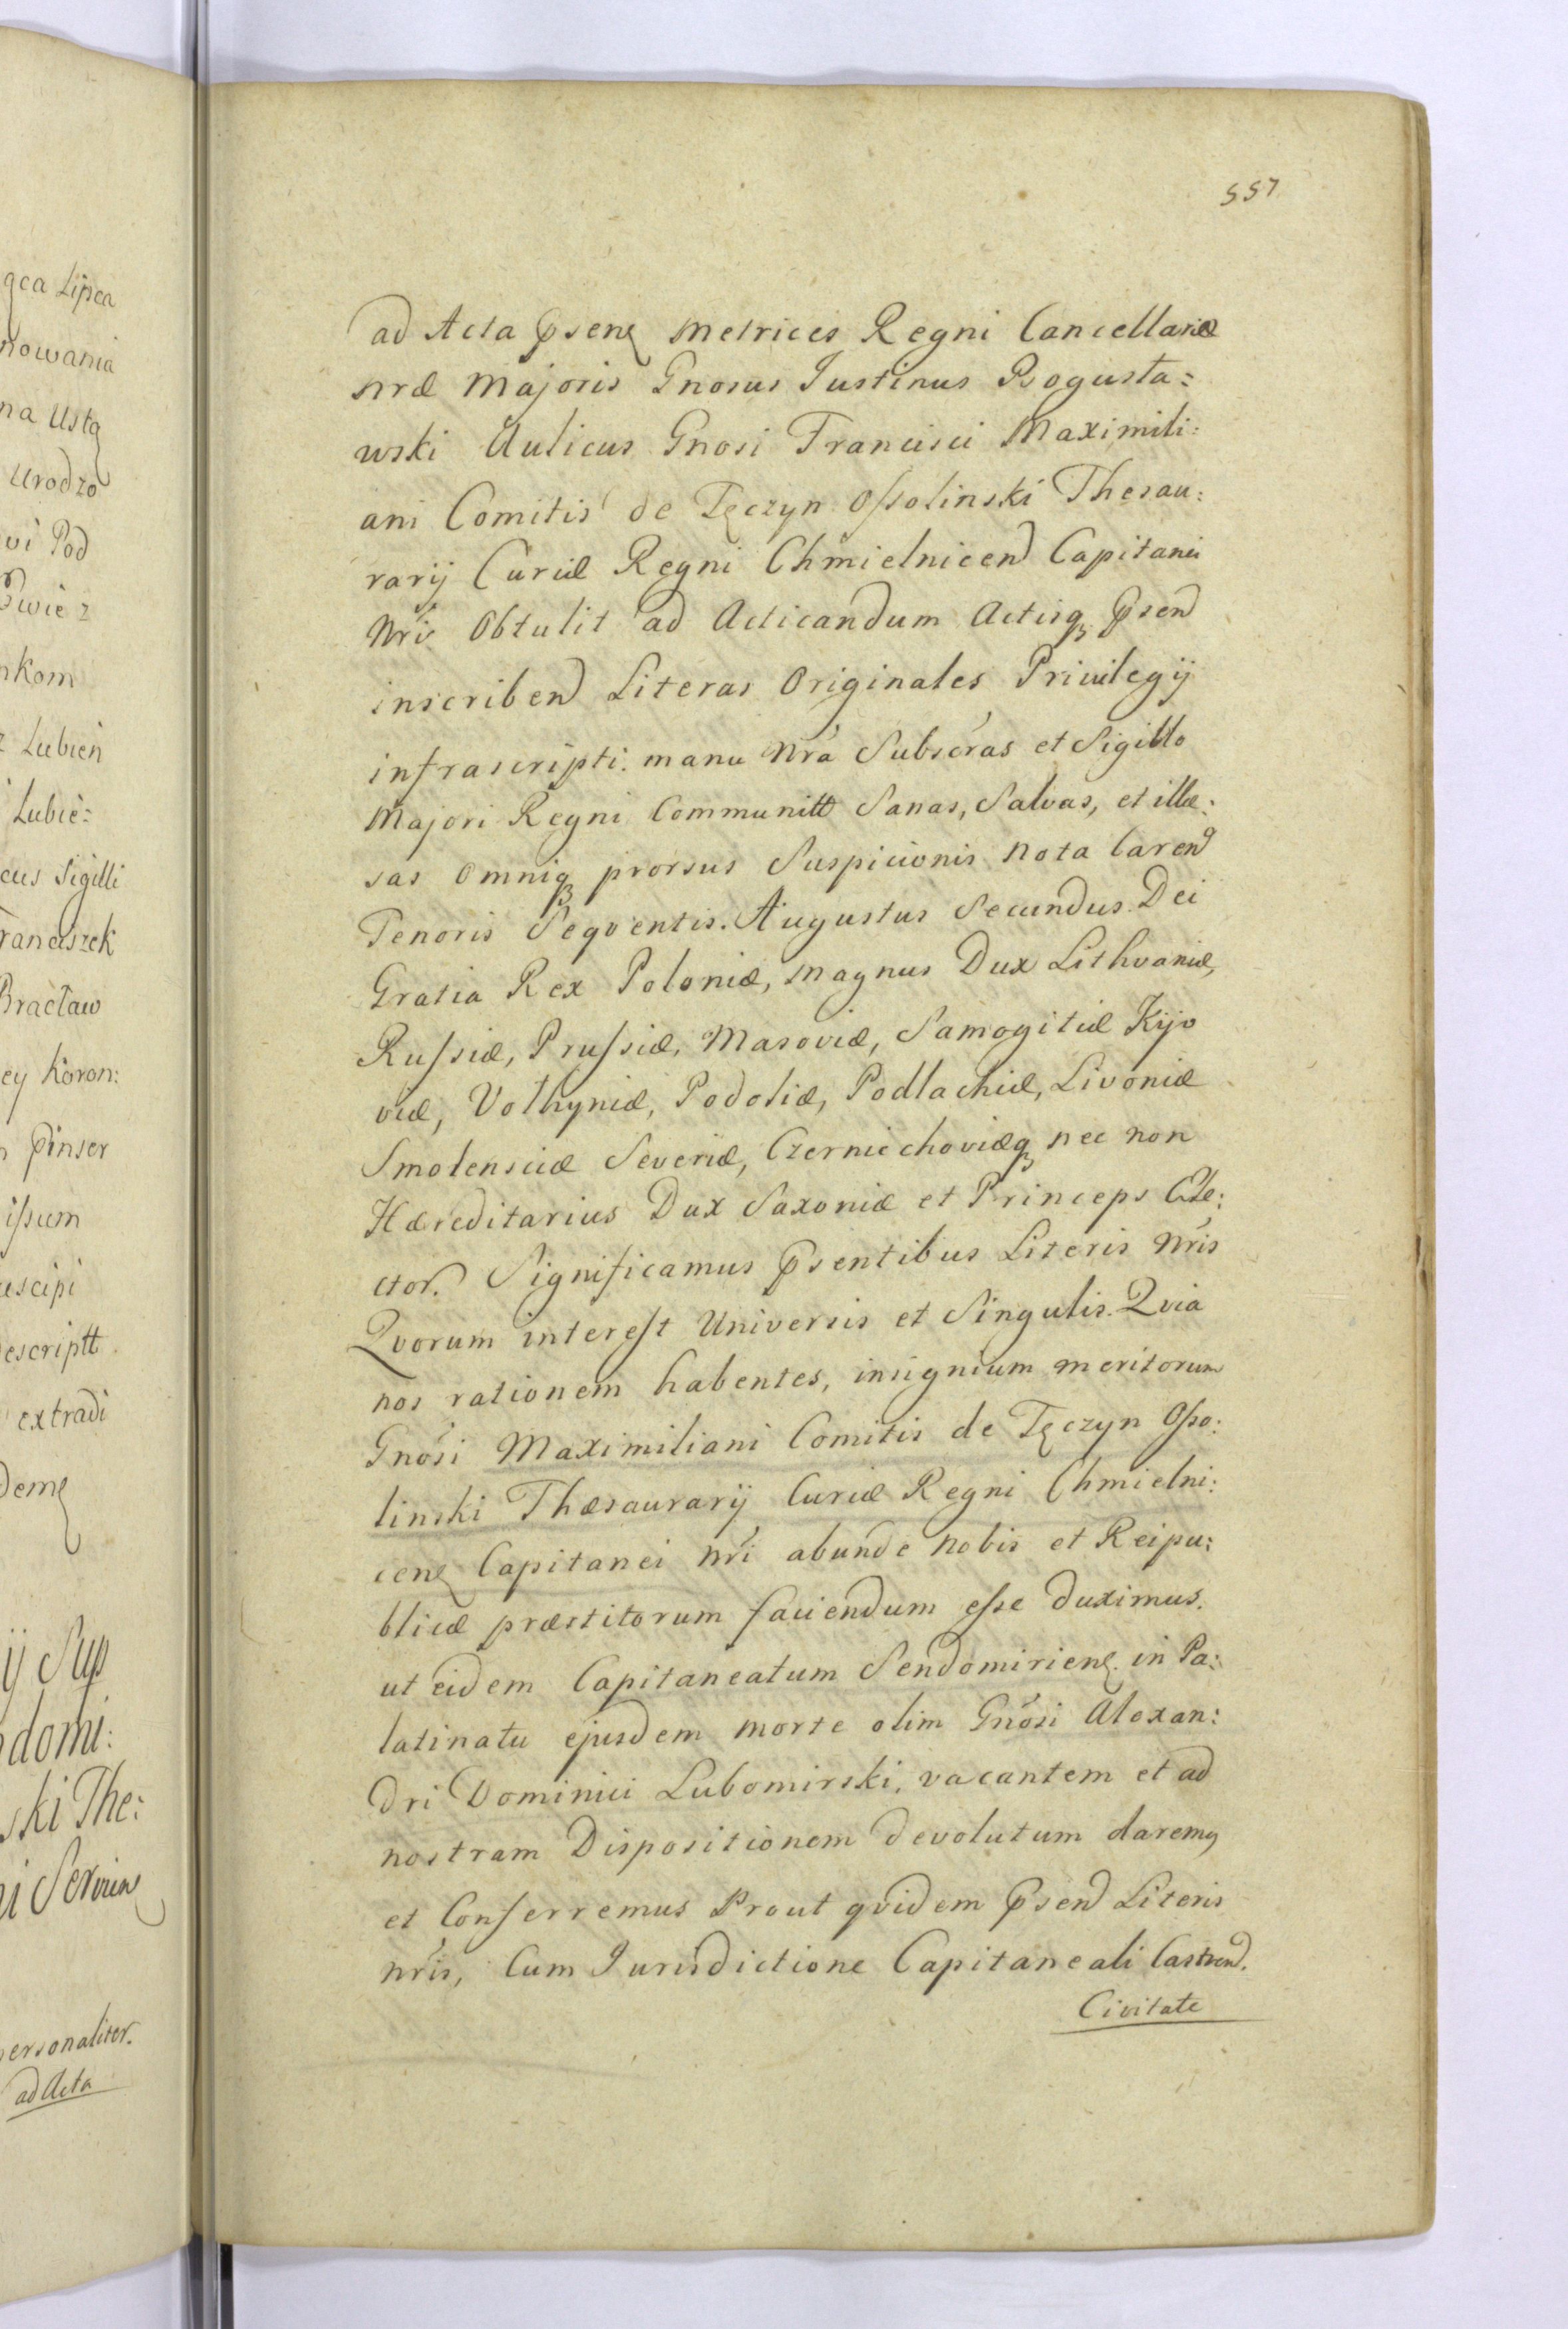 557
ad Acta Psen Metrices Regni Cancellariæ
nræ Majoris Gnosus Justinus Bogusła=
wski Aulicus Gnosi Francisci Maximili:
ani Comitis de Tęczyn Oſsolinski Thesau:
rarij Curiæ Regni Chmielnicen Capitanei
Nri Obtulit ad Acticandum Actisq Psen
inscriben Literas Originales Privilegij
infrascripti. manu Nra Subscras et Sigillo
Majori Regni Communitt Sanas, Salvas, et illæ:
sas Omniq prorsus Suspicionis Nota Caren
Tenoris Seqventis. Augustus Secundus Dei
Gratia Rex Poloniæ, Magnus Dux Lithvaniæ,
Ruſsiæ, Pruſsiæ, Masoviæ, Samogitiæ Kijo
viæ, Volhyniæ, Podoliæ, Podlachiæ, Livoniæ
Smolensciæ Severiæ, Czerniechoviæq nec non
Hæreditarius Dux Saxoniæ et Princeps Ele:
ctor. Significamus Psentibus Literis Nris
Qvorum intereſt Universis et Singulis. Qvia
nos rationem habentes, insignium meritorum
Gnosi Maximiliani Comitis de Tęczyn Oſso:
linski Thæsaurarij Curiæ Regni Chmielni:
cen Capitanei Nri abunde Nobis et Reipu:
blicæ præstitorum faciendum eſse duximus.
ut eidem Capitaneatum Sendomirien. in Pa:
latinatu ejusdem morte olim Gnosi Alexan:
dri Dominici Lubomirski, vacantem et ad
nostram Dispositionem devolutum daremq
et Conferremus Prout qvidem Psen Literis
nris, Cum Jurisdictione Capitaneali Castren.
Civitate
gca Lipca
nowania
na Ustą
Urodzo
wi Pod
nkom
z Lubien
Lubie:
cus Sigilli
ranciszek
Bracław
ey Koron:
Pinser
iſsum
uscipi
escriptt
extradi
dem
ij Sup
ndomi:
ski The:
ersonaliter.
ad Acta